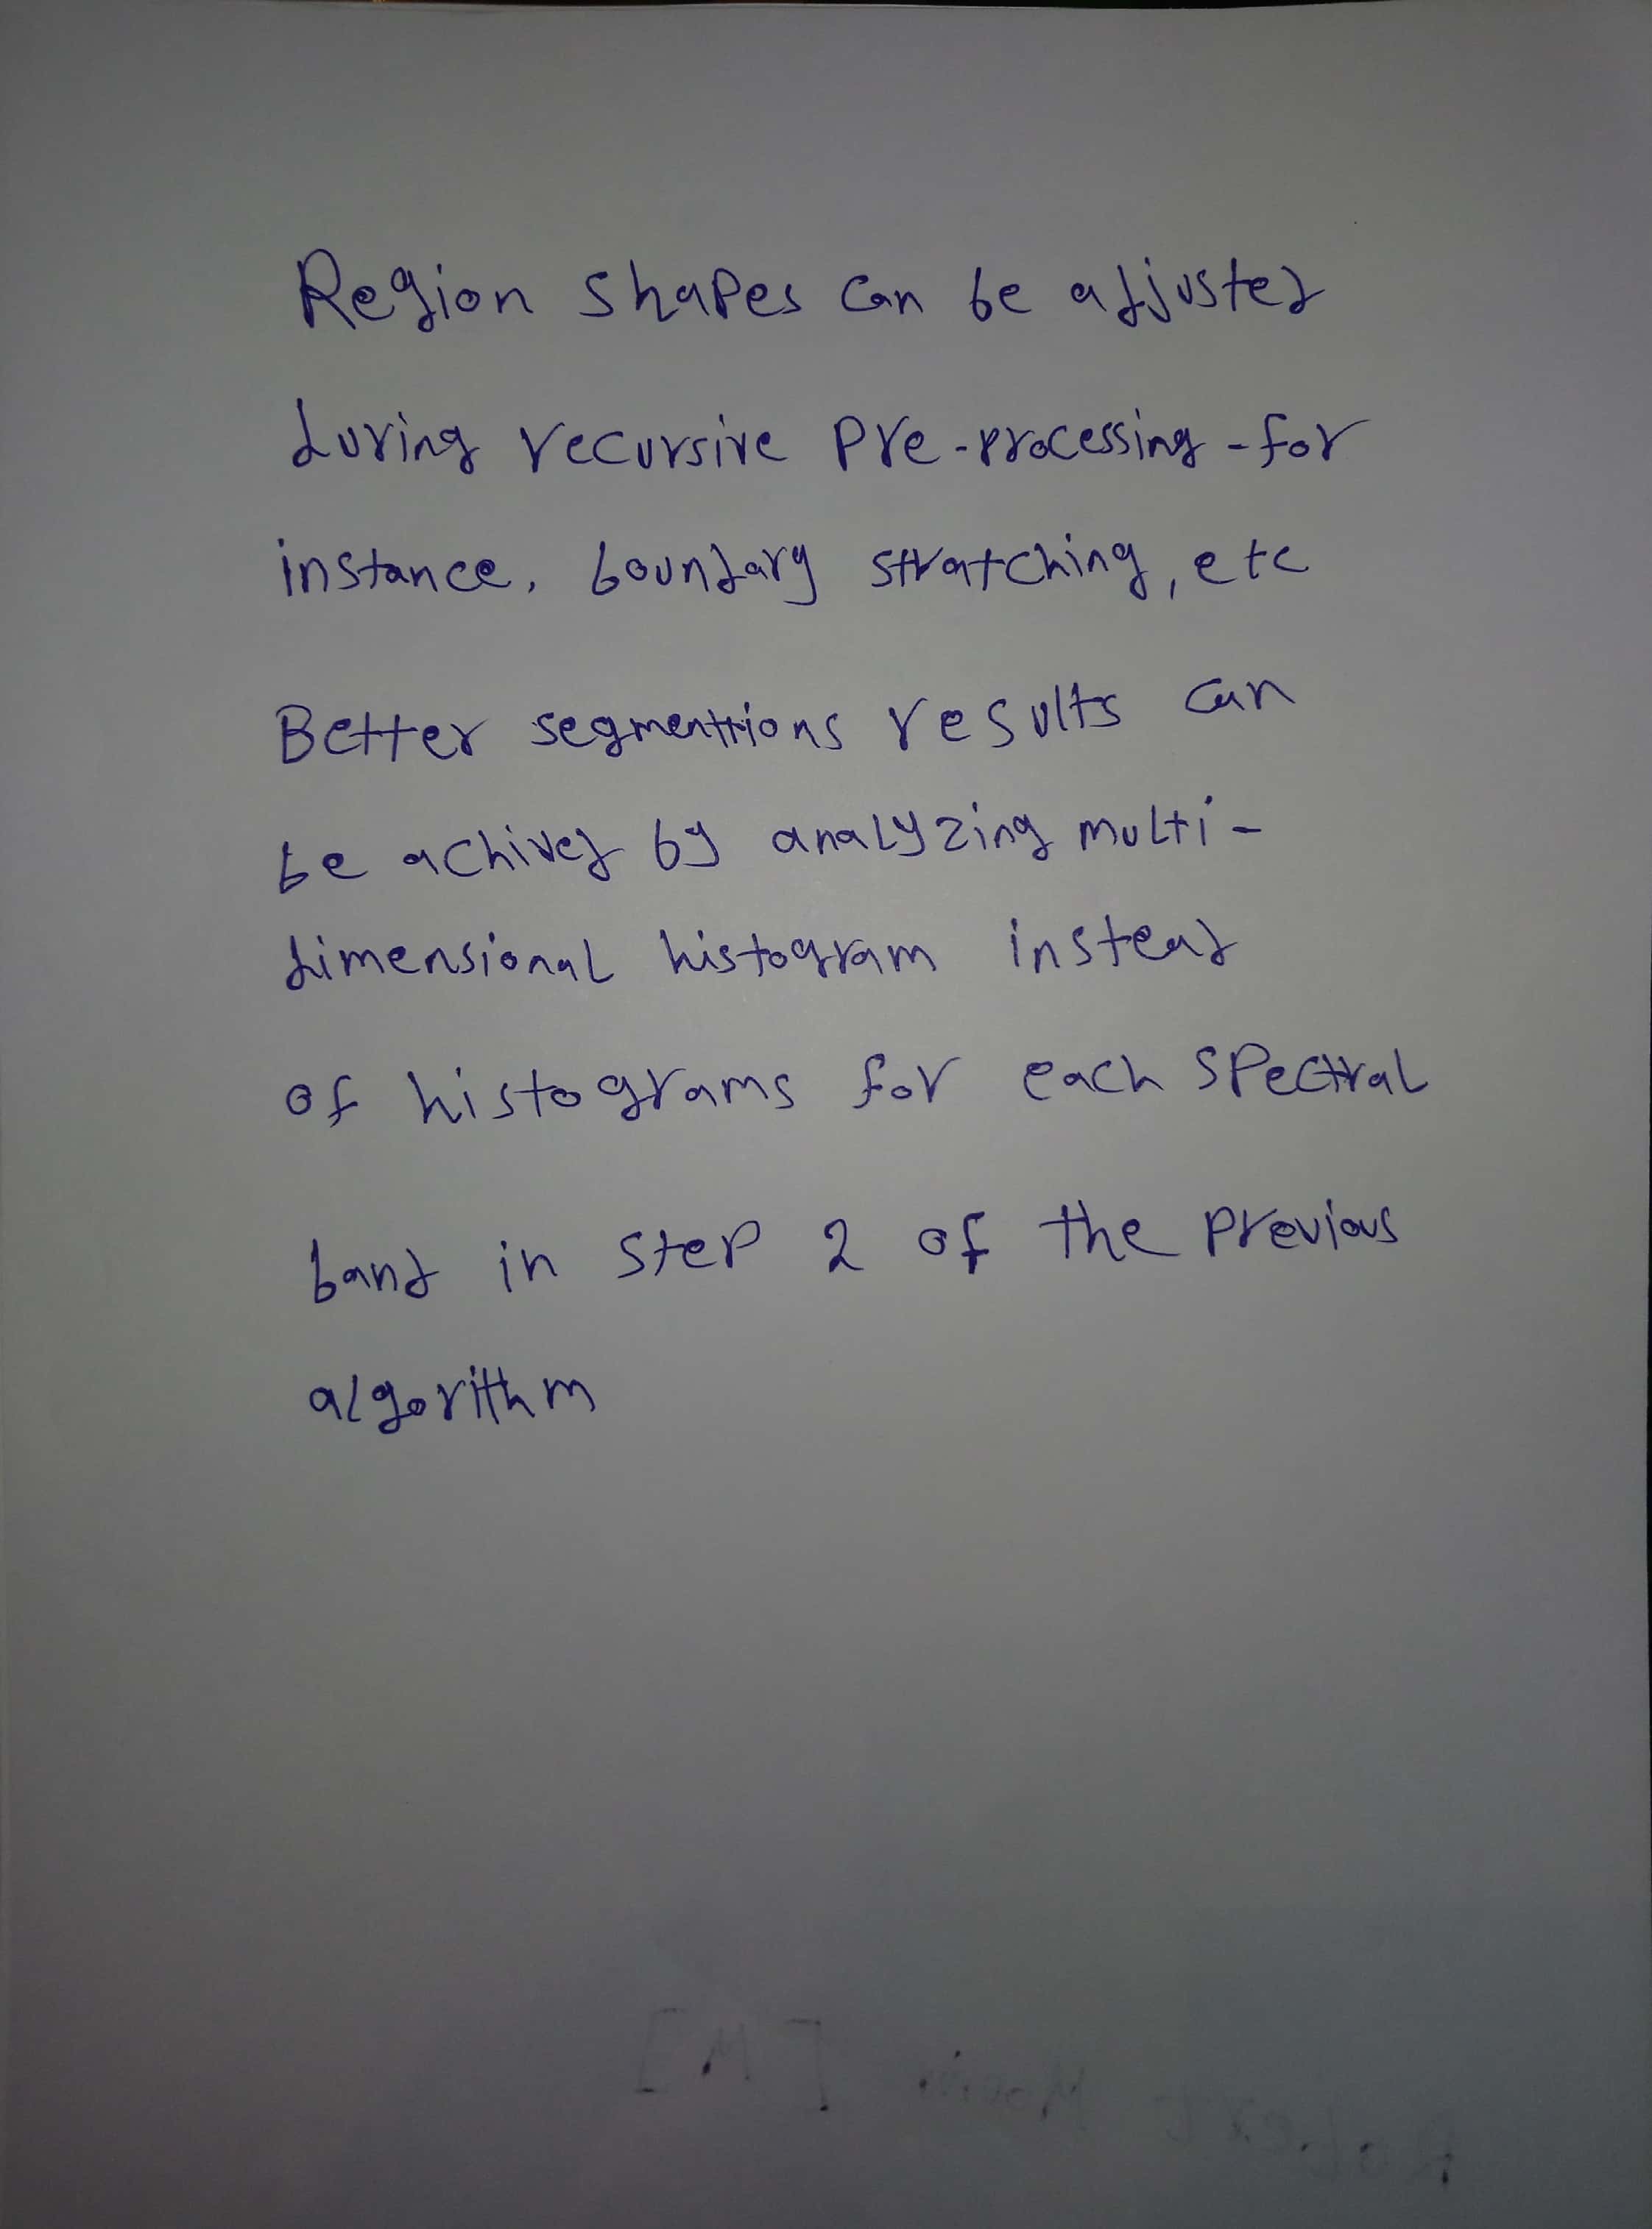 Region shapes can be adjusted
during recursive pre-processing - for
instance, boundary stratching, etc
Better segmenttions results can
be achived by analyzing multi-
dimensional histogram instead
of histograms for each spectral
band in step 2 of the previous
algorithm